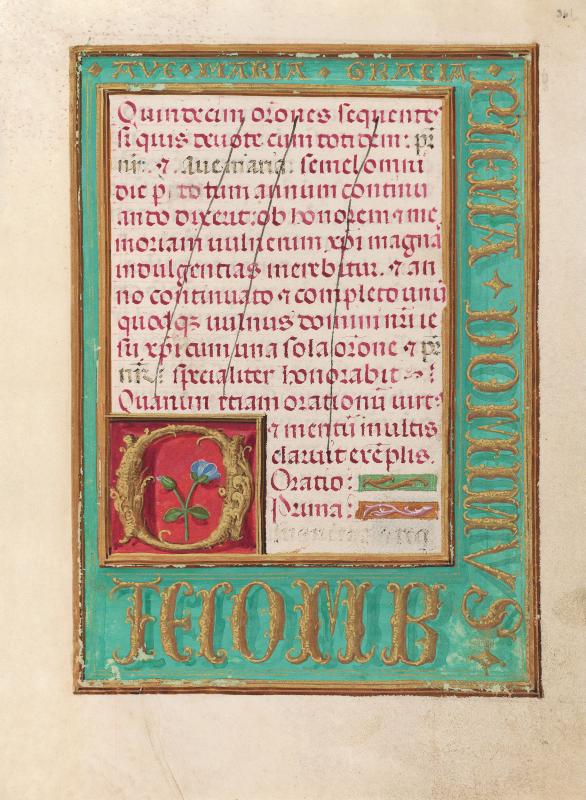 AVE MARIA GRACIA
PLENA DOMINVS
Quindecim or̄ones sequente
si quis deuote cum totidem: pr̄
nr̄. ⁊ Aue maria: semel omni
die p totum annum continu
ando dixerit: ob honorem ⁊ me
moriam uulnerum xp̄i magnā
indulgentias merebitur. ⁊ an
no continuato ⁊ completo unū
quodqꝫ uulnus domini nr̄i ie
su xp̄i cum una sola or̄one ⁊ pr̄
nr̄: specialiter honorabit
Quarum etiam orationū uirt
⁊ mentū multis
claruit exēplis.
Oratio:
Prima:
O